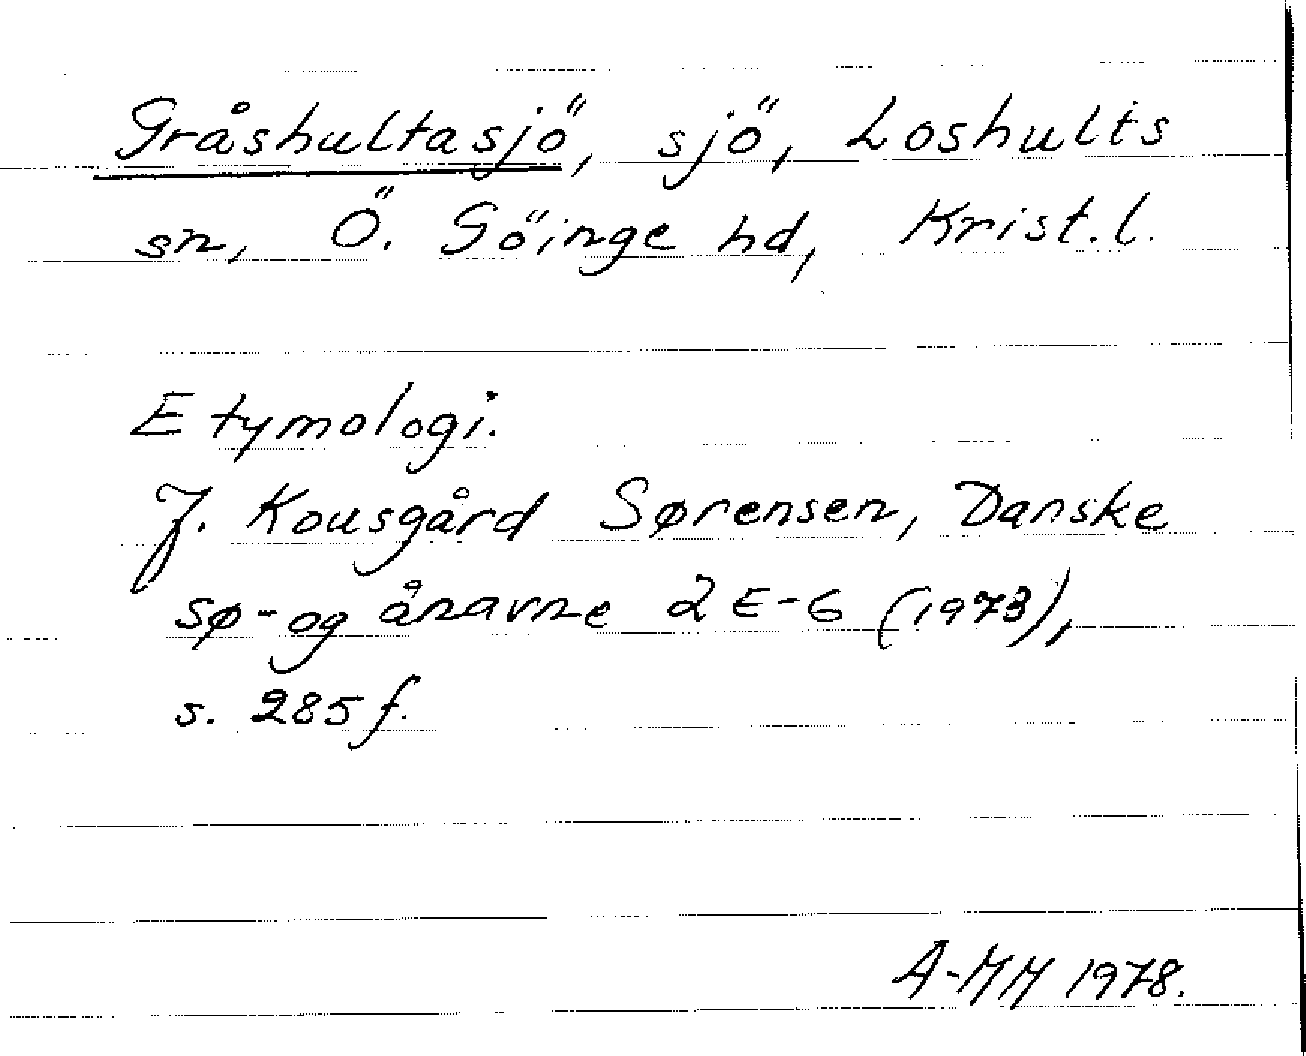 Gråshultasjö, sjö, Loshults
sn, Ö. Göinge hd, Krist.l.
Etymologi.
J. Kousgård Sørensen, Danske
sø- og ånavne 2 E-G (1973),
s. 285 f.
A-MM 1978.